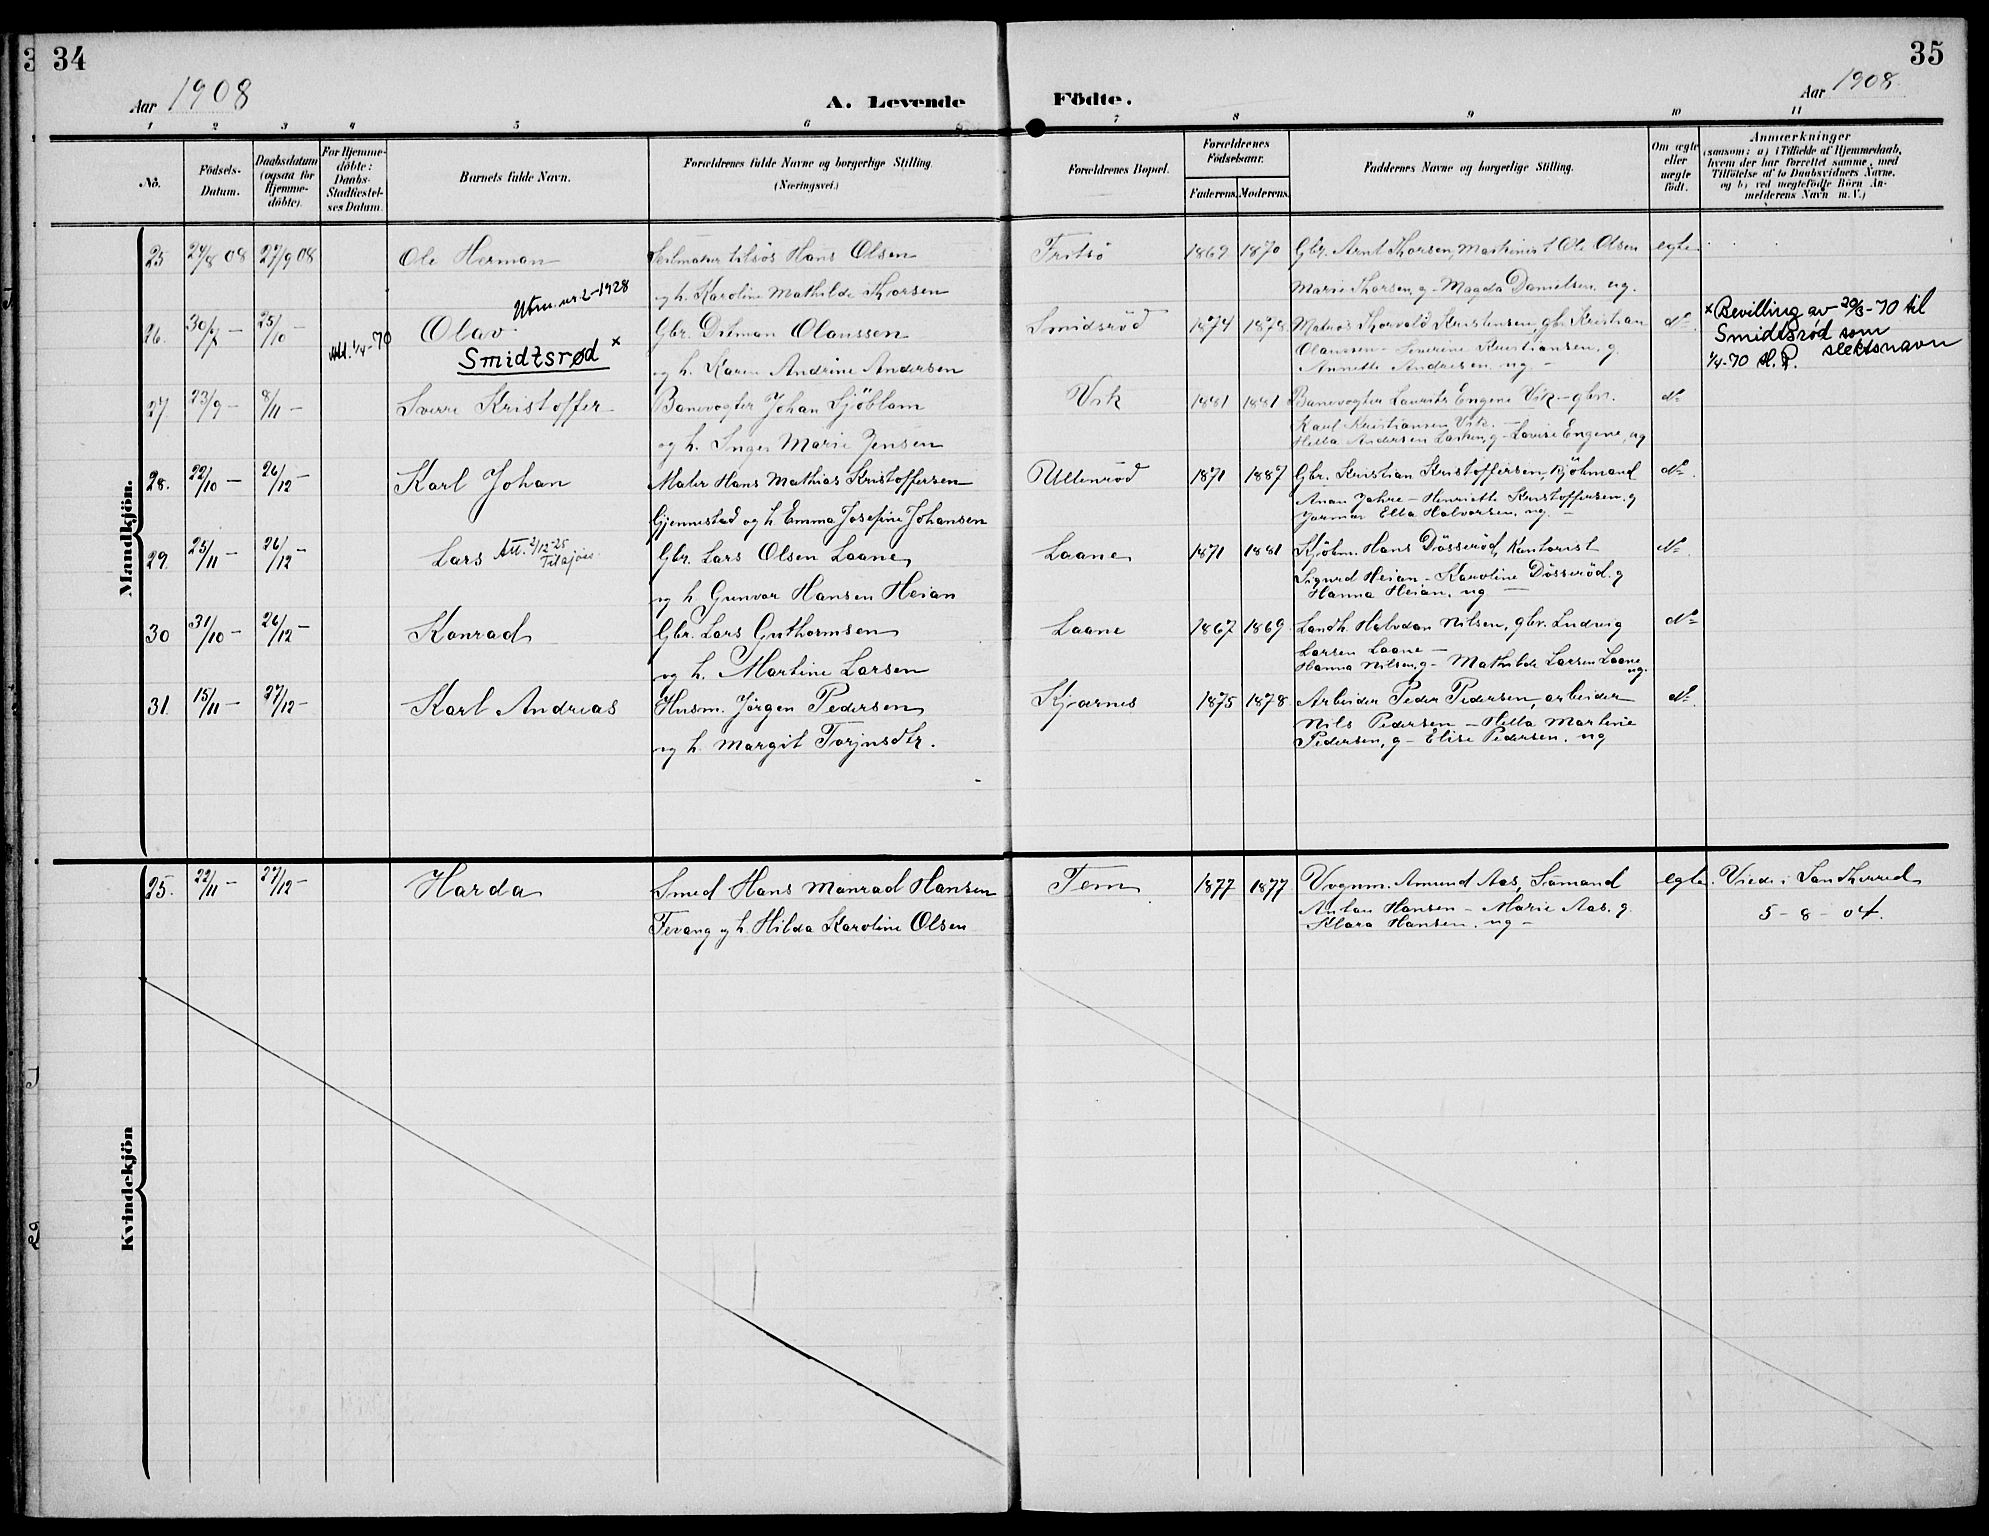 34
35
Aar 1908
A. Levende Födte.
Aar 1908.
1 2 3 4 5 6 7 8 9 10 11
No.
Födsels-Datum.
Daabsdatum (ogsaa for Hjemmedöbte).
For Hjemmedöbte: Daabs-Stadfæstelses Datum.
Barnets fulde Navn.
Forældrenes fulde Navne og borgerlige Stilling. (Næringsvei.)
Forældrenes Bopæl.
Forældrenes Födselsaar.
Faderens. Moderens.
Faddernes Navne og borgerlige Stilling.
Om ægte eller uægte født.
Anmærkninger
(saasom: a) i Tilfælde af Hjemmedaab, hvem der har forrettet samme, med Tilföielse af to Daabsvidners Navne, og b) ved uægtefödte Börn Anmelderens Navn m. V.)
Mandkjön.
25 24/8 08 27/9 08 Ole Herman Hans Olsen Fritsö 1869 1870 Gbr. Arnt Thorsen, Maskinist Ole Olsen egte
og h. Karoline Mathilde Thorsen Marie Thorsen, g - Magda Danielsen, ug.
Utm. nr. 2-1928
26. 30/7 - 25/10 - Olav Gbr. Ditman Olaussen Smidsröd 1874 1878 Matros Thorvald Kristensen, gbr. Kristian do
att. 1/4-70 Smidtsrød x og h. Karen Andrine Andersen Olaussen - Severine Kristiansen, g.
Annette Andresen, ug -
x Bevilling av 20/3-70 til
Smidtsrød som
slektsnavn
1/4-70
27. 23/9 - 8/11 - Sverre Kristoffer Banevogter Johan Sjöblom Vik 1881 1881 Banevogter Laurits Engene Vik - gbr. do
og h. Inger Marie Jensen Karl Kristiansen Vik. -
Hella Andersen g - Lovise Engene, ug
28. 22/10 - 26/12 - Karl Johan Maler Hans Mathias Kristoffersen Ullenröd 1871 1887 Gbr. Kristian Kristoffersen, Kjöbmand do
Gjennestad og h. Emma Josefine Johansen Anan Jahre - Henriette Kristoffersen, g
Ella Halvorsen, ug. -
29. 25/11 - 26/12 - Lars Att. 2/12-25 Gbr. Lars Olsen Laane Laane 1871 1881 Kjöbm. Hans Dösseröd, Kontorist do
og h. Gunvor Hansen Heian Sigurd Heian - Karoline Dösseröd. g
Hanna Heian, ug -
30 31/10 - 26/12 - Konrad Gbr. Lars Guthormsen Laane 1867 1869 Landh. Halvdan Nilsen, gbr. Ludvig do
og h. Martine Larsen Larsen Laane -
Hanna Nilsen, g - Mathilde Larsen Laane ug.
31. 15/11 - 27/12 - Karl Andreas Husm. Jörgen Pedersen Kjærnes 1875 1878 Arbeider Peder Pedersen, arbeider do
og h. Margit Torjusdtr. Nils Pedersen - Hella Martine
Pedersen, g - Elise Pedersen, ug
Kvindekjön
25. 22/11 - 27/12 - Harda Smed Hans Manrad Hansen Tem 1877 1877 Vognm. Amund Aas, Sömand egte. Viede i Sandherred
Tevang og h. Hilda Karoline Olsen Anton Hansen - Marie Aas, g. 5-8-04.
Klara Hansen, ug -